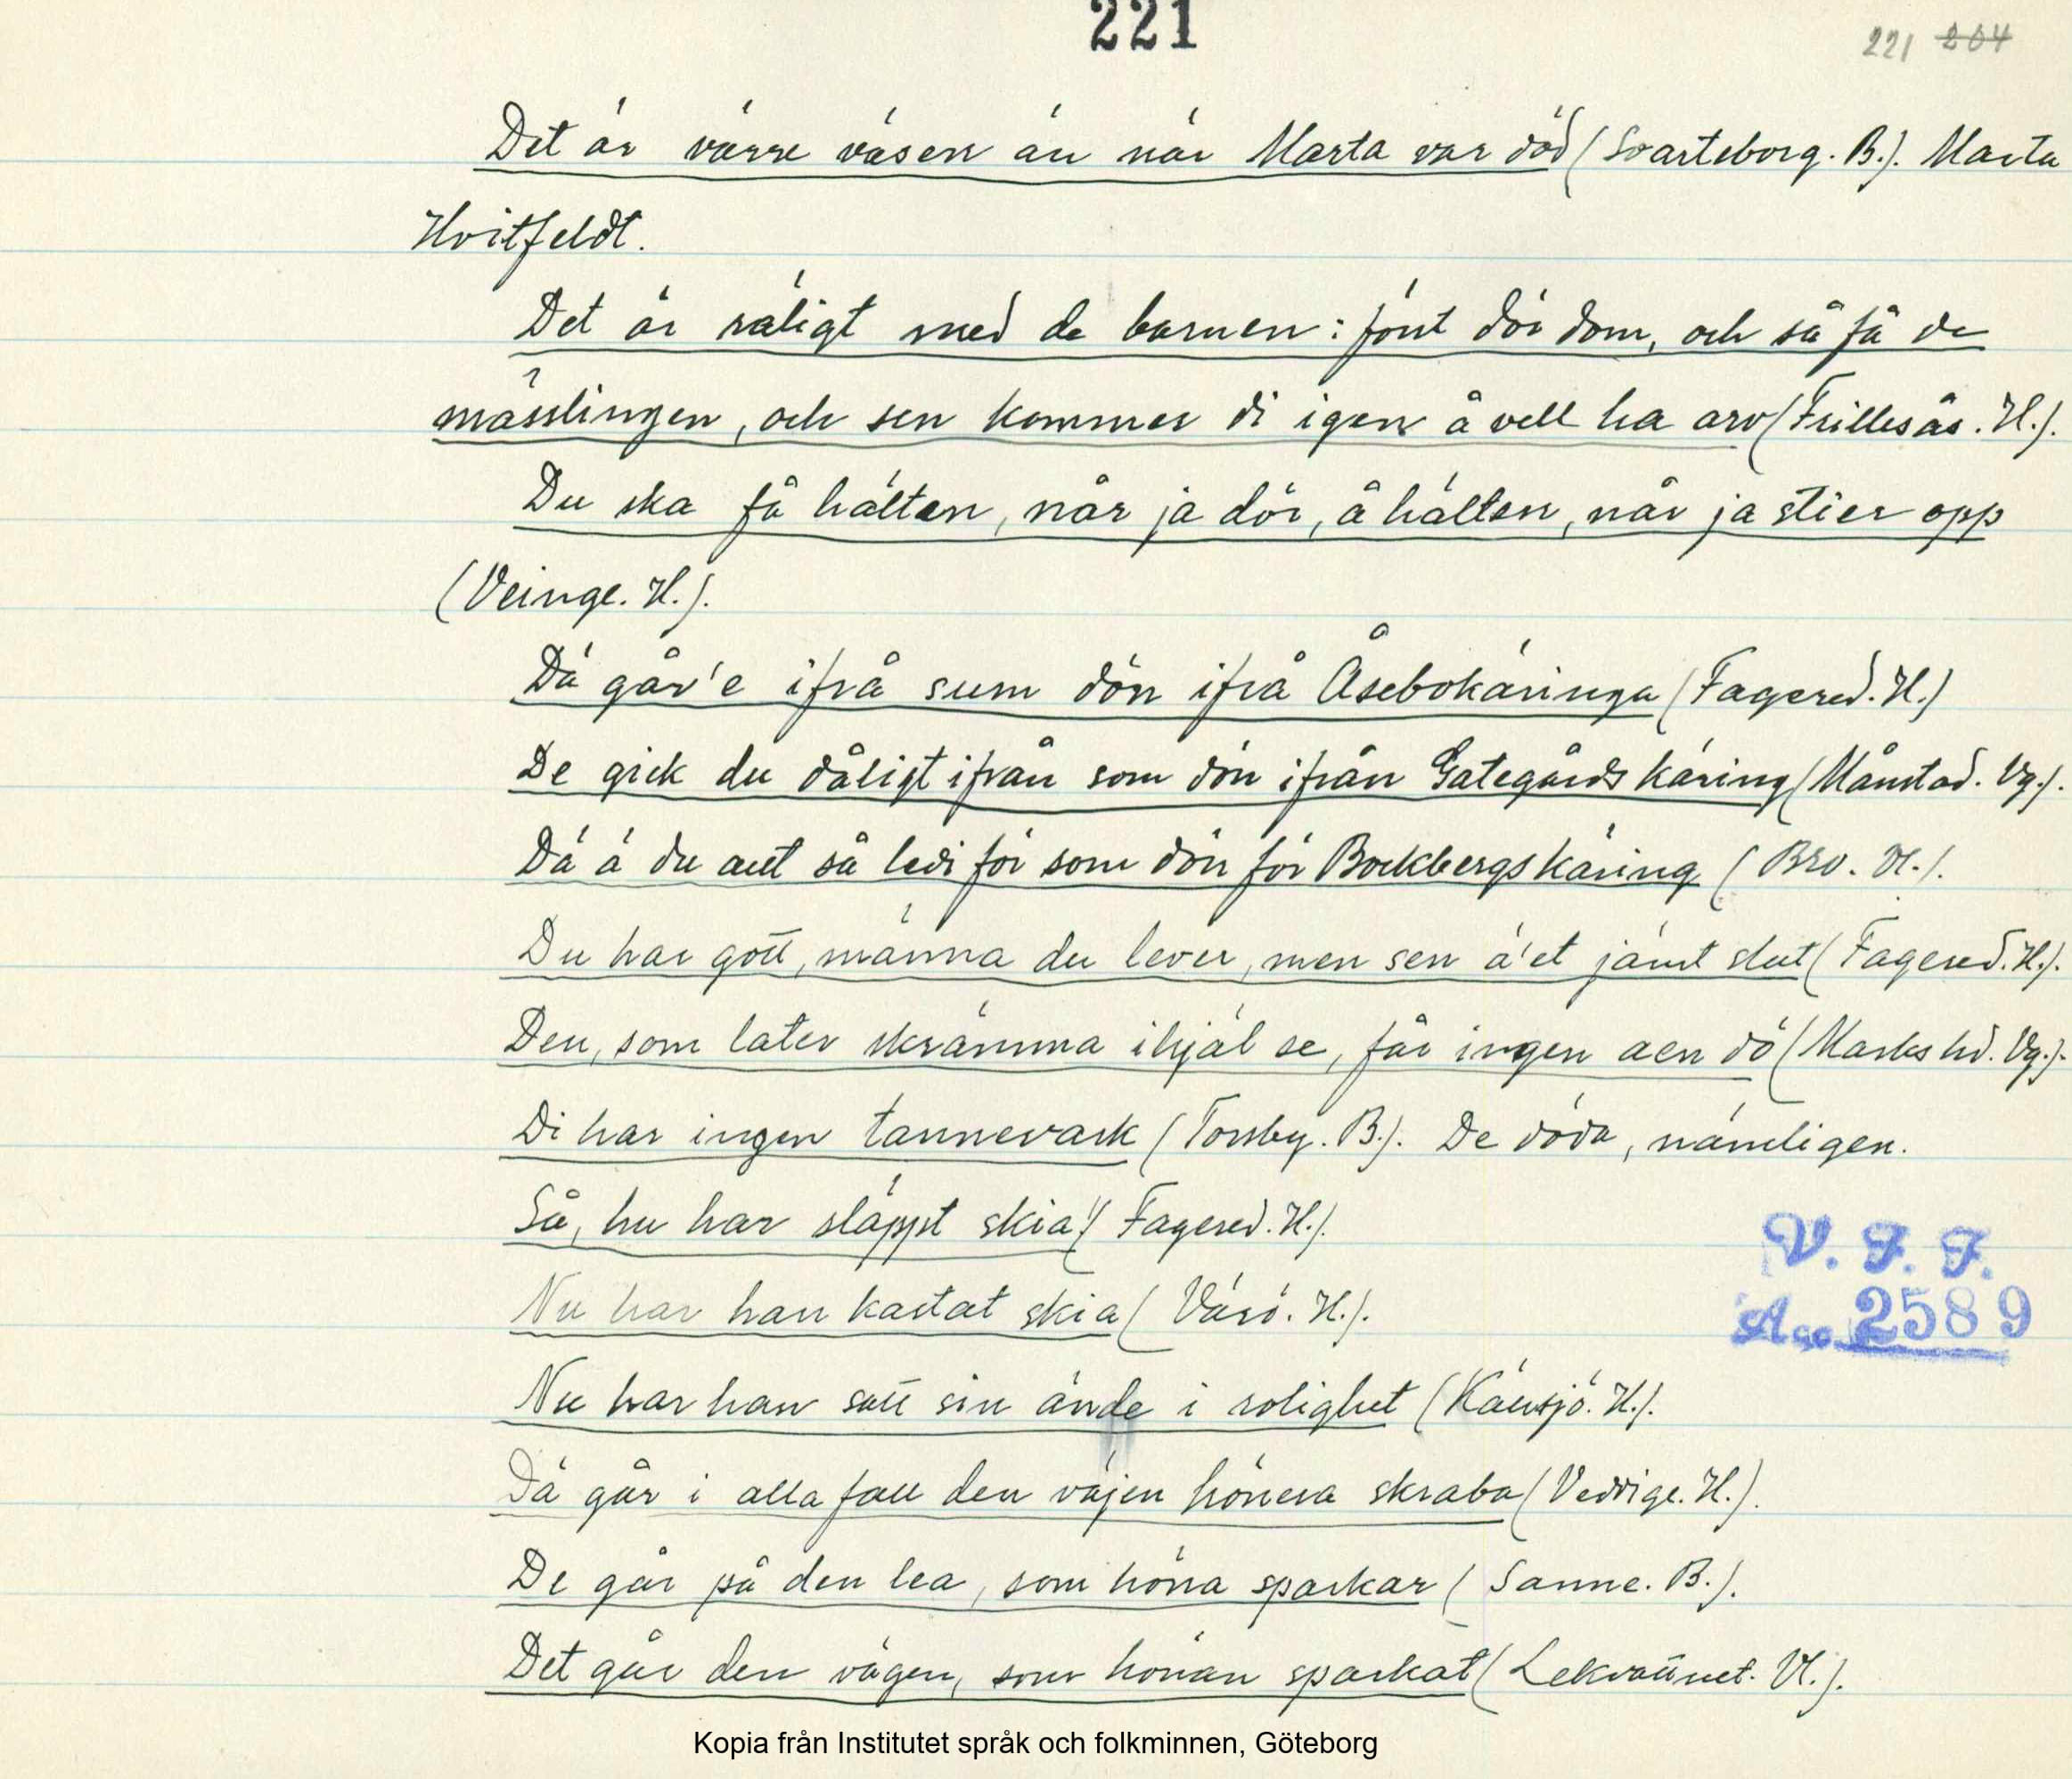 221
221 204
Det är värre väsen än när Marta var död (Svarteborg. B.). Marta
Hvitfeldt.
Det är räligt med de barnen: föst dör dom, och så få de
mässlingen, och sen kommer di igen å vell ha arv (Frillesås. H.).
Du ska få hälten, når ja dör, å hälten, når ja stier opp
(Veinge. H.).
Dä går'e ifrå sum dön ifrå Åsebokäringa (Fagered. H.)
De gick du dåligt ifrån som dön ifrån Gategårds käring (Månstad. Vg.).
Dä ä du aut så ledi för som dön för Bockbergskäring (Bro. H.).
Du har gott, männa du lever, men sen ä'et jämt slut (Fagered. H.).
Den, som later skrämma ihjäl se, får ingen aen dö (Marks hd. Vg.).
Di har ingen tannevark (Torsby. B.). De döda, nämligen.
Så, hu har släppt skia! (Fagered. H.).
Nu har han kastat skia (Värö. H.).
Nu har han satt sin ände i rolighet (Känsjö. H.).
Dä går i alla fall den väjen hönera skraba (Veddige. H.).
De går på den lea, som höna sparkar (Sanne. B.).
Det går den vägen, som hönan sparkat (Lekvattnet. Vl.).
V. F. F.
Acc. 2589
Kopia från Institutet språk och folkminnen, Göteborg